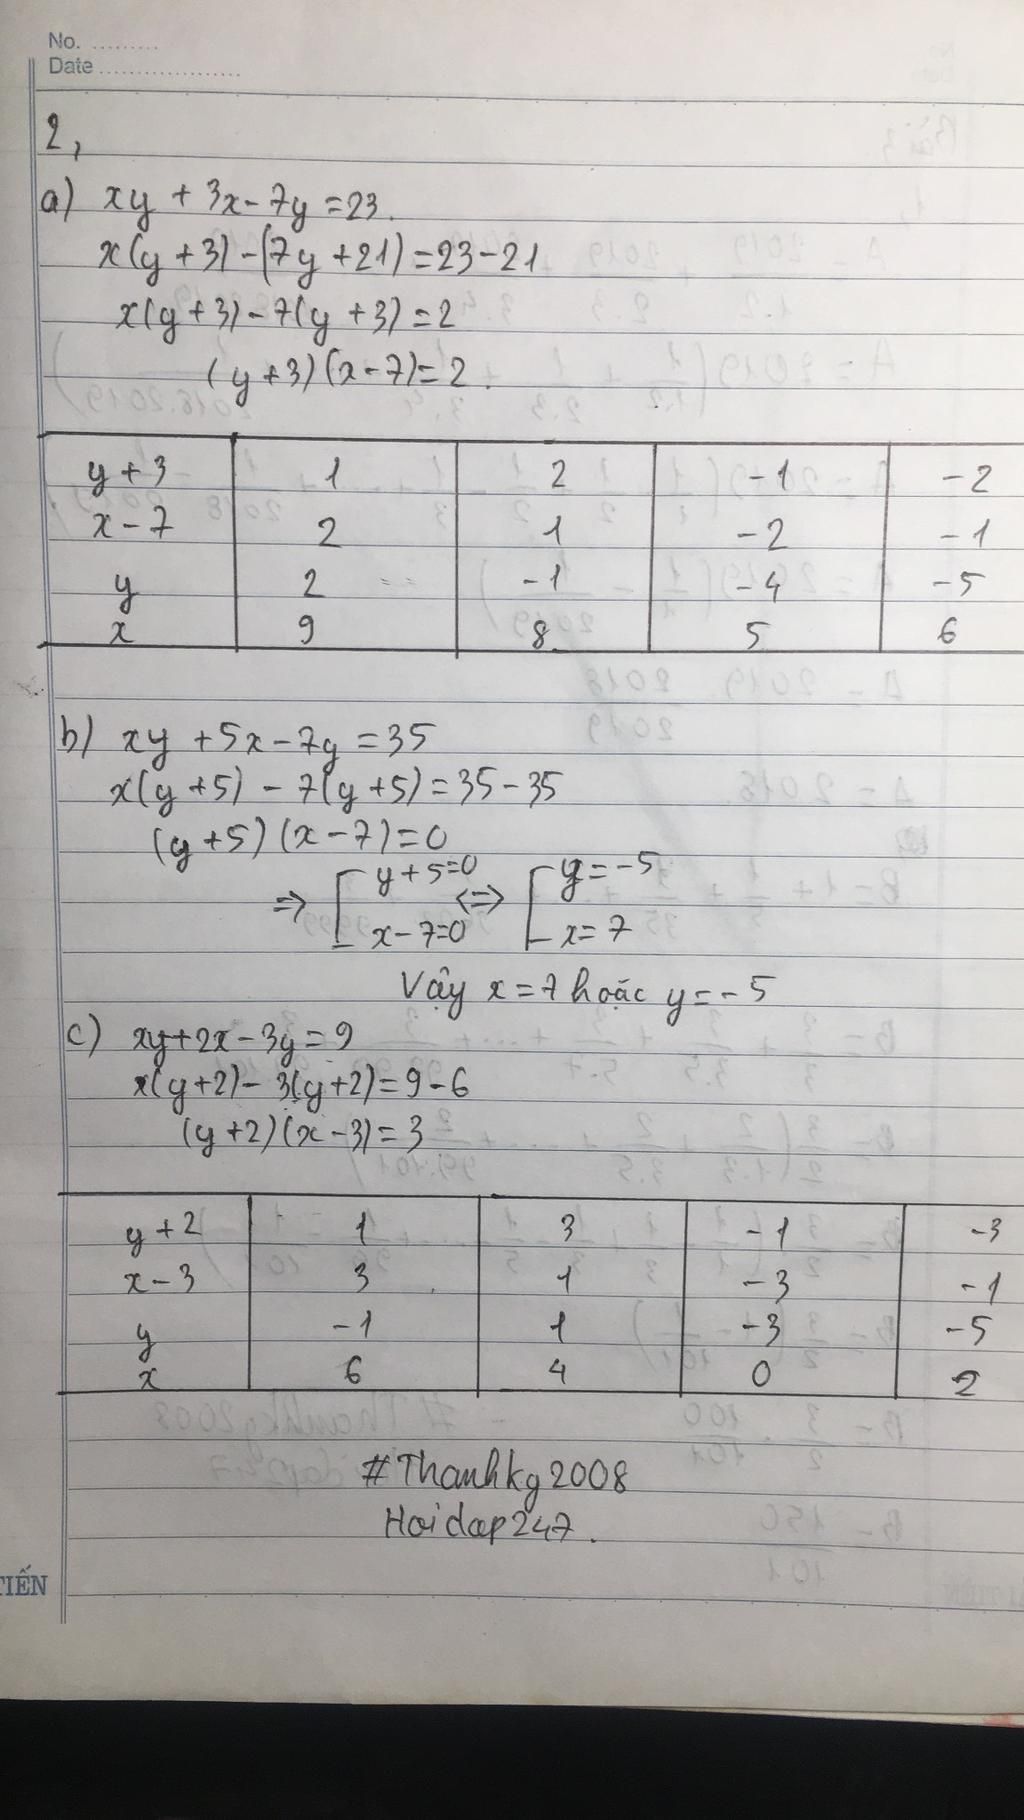 No. .........
Date ....................
2,
a) xy + 3x - 7y = 23.
x(y + 3) - (7y + 21) = 23 - 21
x(y + 3) - 7(y + 3) = 2
(y + 3) (x - 7) = 2.
y + 3 1 2 - 1 - 2
x - 7 2 1 - 2 - 1
y 2 - 1 - 4 - 5
x 9 8 5 6
b) xy + 5x - 7y = 35
x(y + 5) - 7(y + 5) = 35 - 35
(y + 5) (x - 7) = 0
⇒ [ y + 5 = 0 ⇔ [ y = - 5
x - 7 = 0 x = 7
Vậy x = 7 hoặc y = - 5
c) xy + 2x - 3y = 9
x(y + 2) - 3(y + 2) = 9 - 6
(y + 2) (x - 3) = 3
y + 2 1 3 - 1 - 3
x - 3 3 1 - 3 - 1
y - 1 1 - 3 - 5
x 6 4 0 2
#Thanhkg2008
Hoidap247.
TIẾN